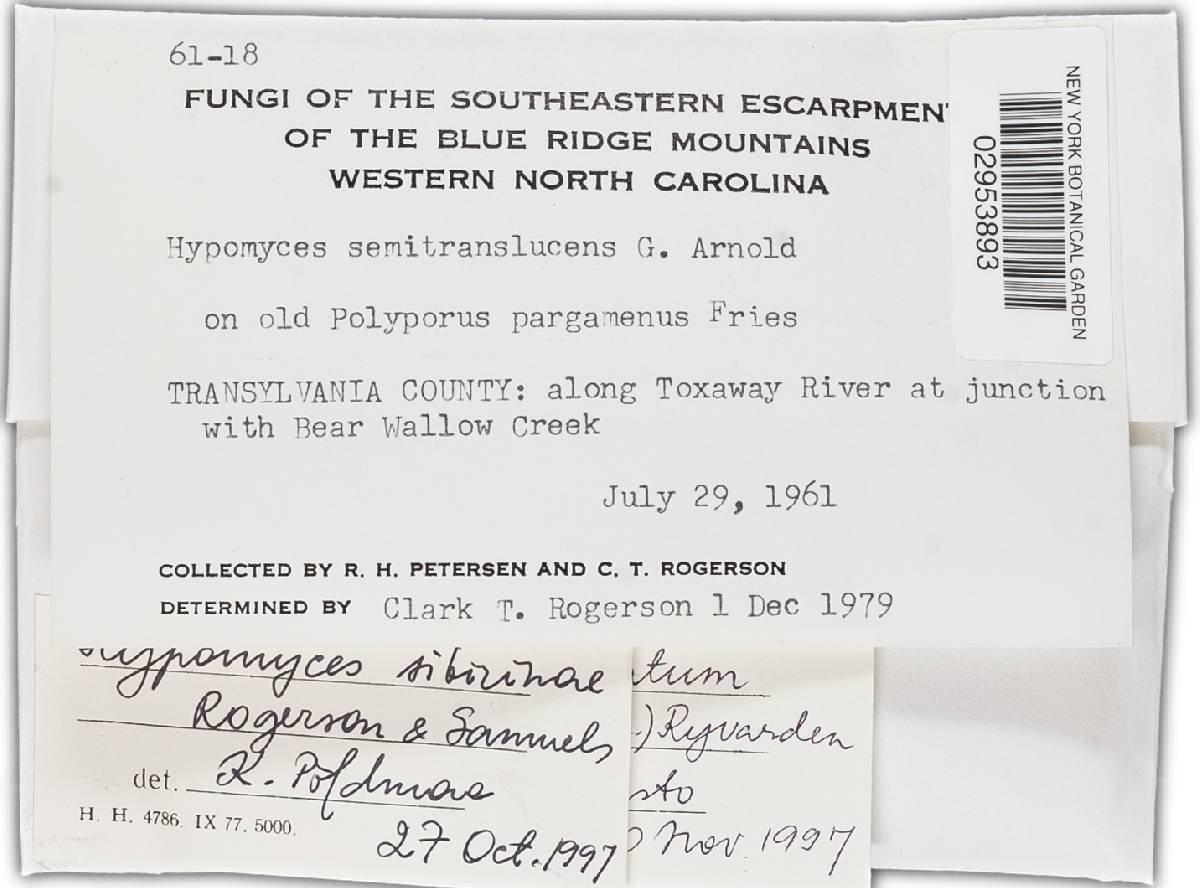 61-18
FUNGI OF THE SOUTHEASTERN ESCARPMEN
OF THE BLUE RIDGE MOUNTAINS
WESTERN NORTH CAROLINA
NEW YORK BOTANICAL GARDEN
02953893
Hypomyces semitranslucens G. Arnold
on old Polyporus pargamenus Fries
TRANSYLVANIA COUNTY: along Toxaway River at junction
with Bear Wallow Creek
July 29, 1961
COLLECTED BY R. H. PETERSEN AND C. T. ROGERSON
DETERMINED BY Clark T. Rogerson 1 Dec 1979
Hypomyces sibirinae
Rogerson & Samuels
det. K. Põldmaa
H. H. 4786. IX 77. 5000.
27 Oct. 1997
tum
) Ryvarden
sto
Nov. 1997